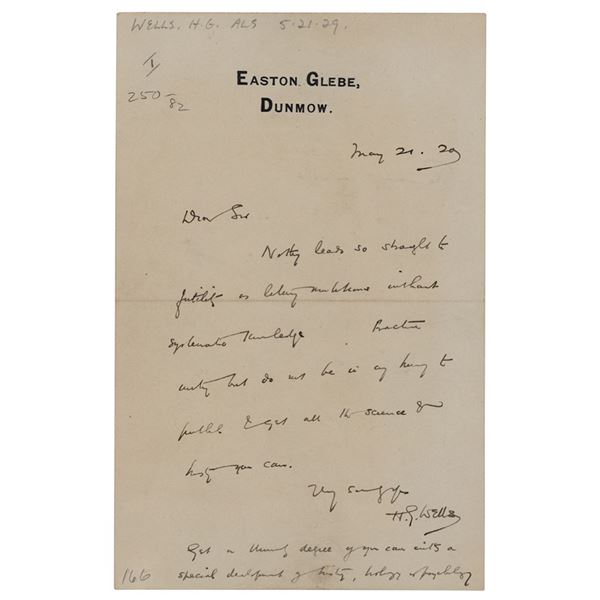 WELLS, H.G. ALS 5-21-29.
1/
250-
82
EASTON GLEBE,
DUNMOW.
May 21. 29
Dear Sir
Nothing leads so straight to
futility as literary ambitions without
systematic knowledge. Practise
writing but do not be in any hurry to
publish & get all the science &
history you can.
Very sincerely yours
H. G. Wells
Get a University degree if you can with a
special development of history, biology or psychology
166